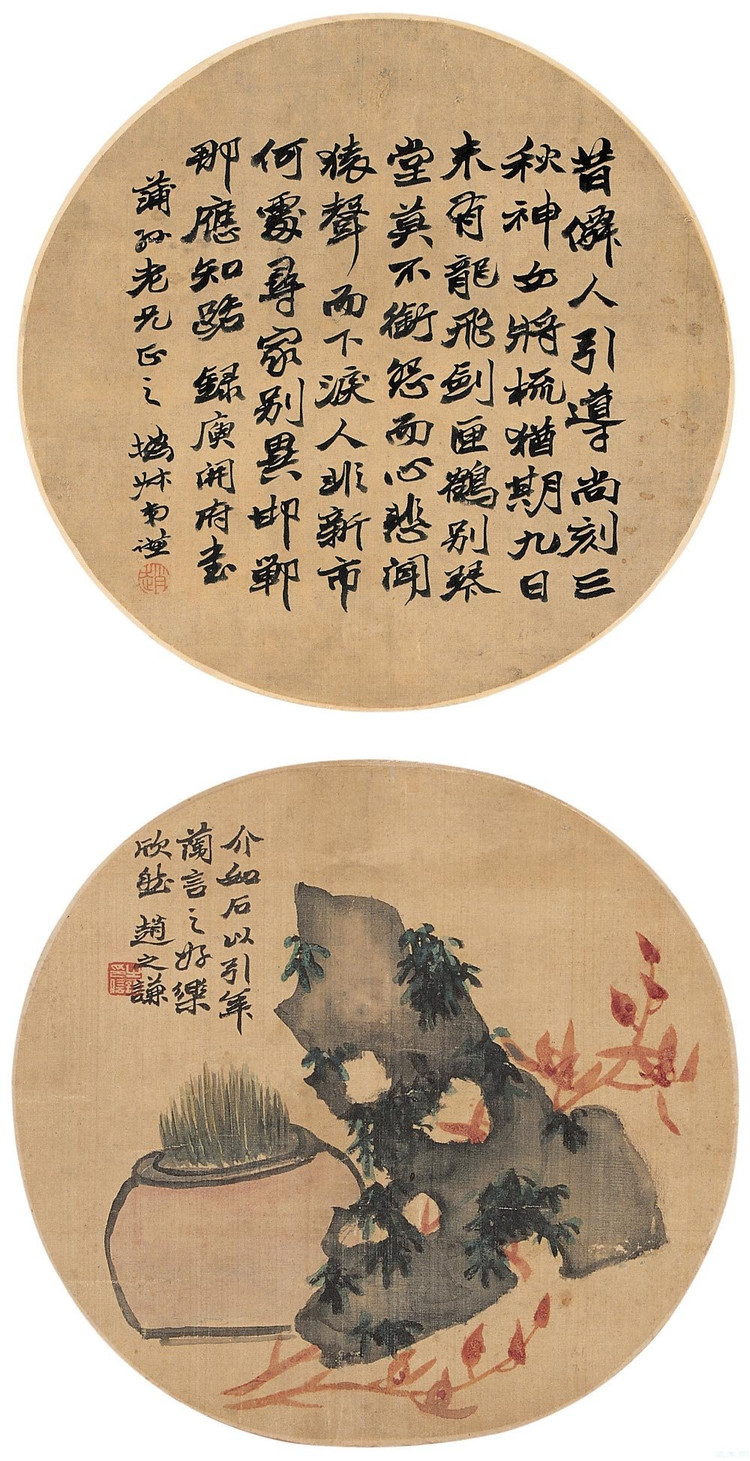 昔僊人引導尚刻三
秋神女將梳猶期九日
未有龍飛劍匣鶴別琴
堂莫不銜怨而心悲聞
猿聲而下淚人非新市
何處尋家別異邯鄲
那應知路 錄庾開府書
蒲孫老兄正之 撝叔弟謙
趙
介如石以引年
蘭言之好樂
欣然 趙之謙